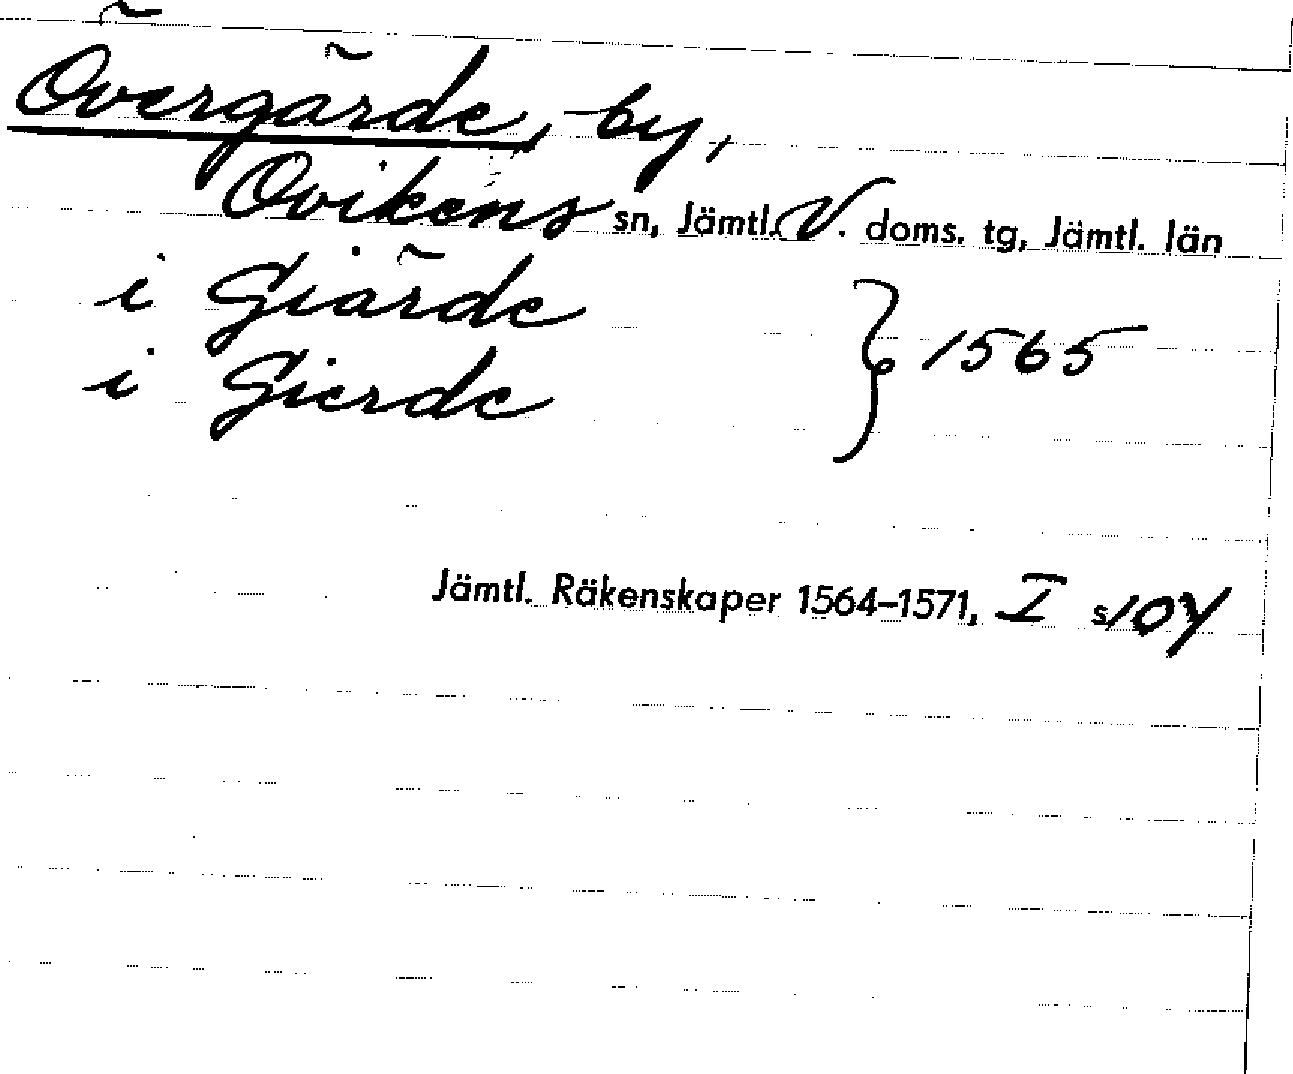 Övergärde, by,
Ovikens sn, Jämtl. V. doms. tg, Jämtl. län
i Giärde } 1565
i Gierde
Jämtl. Räkenskaper 1564–1571, I s 104